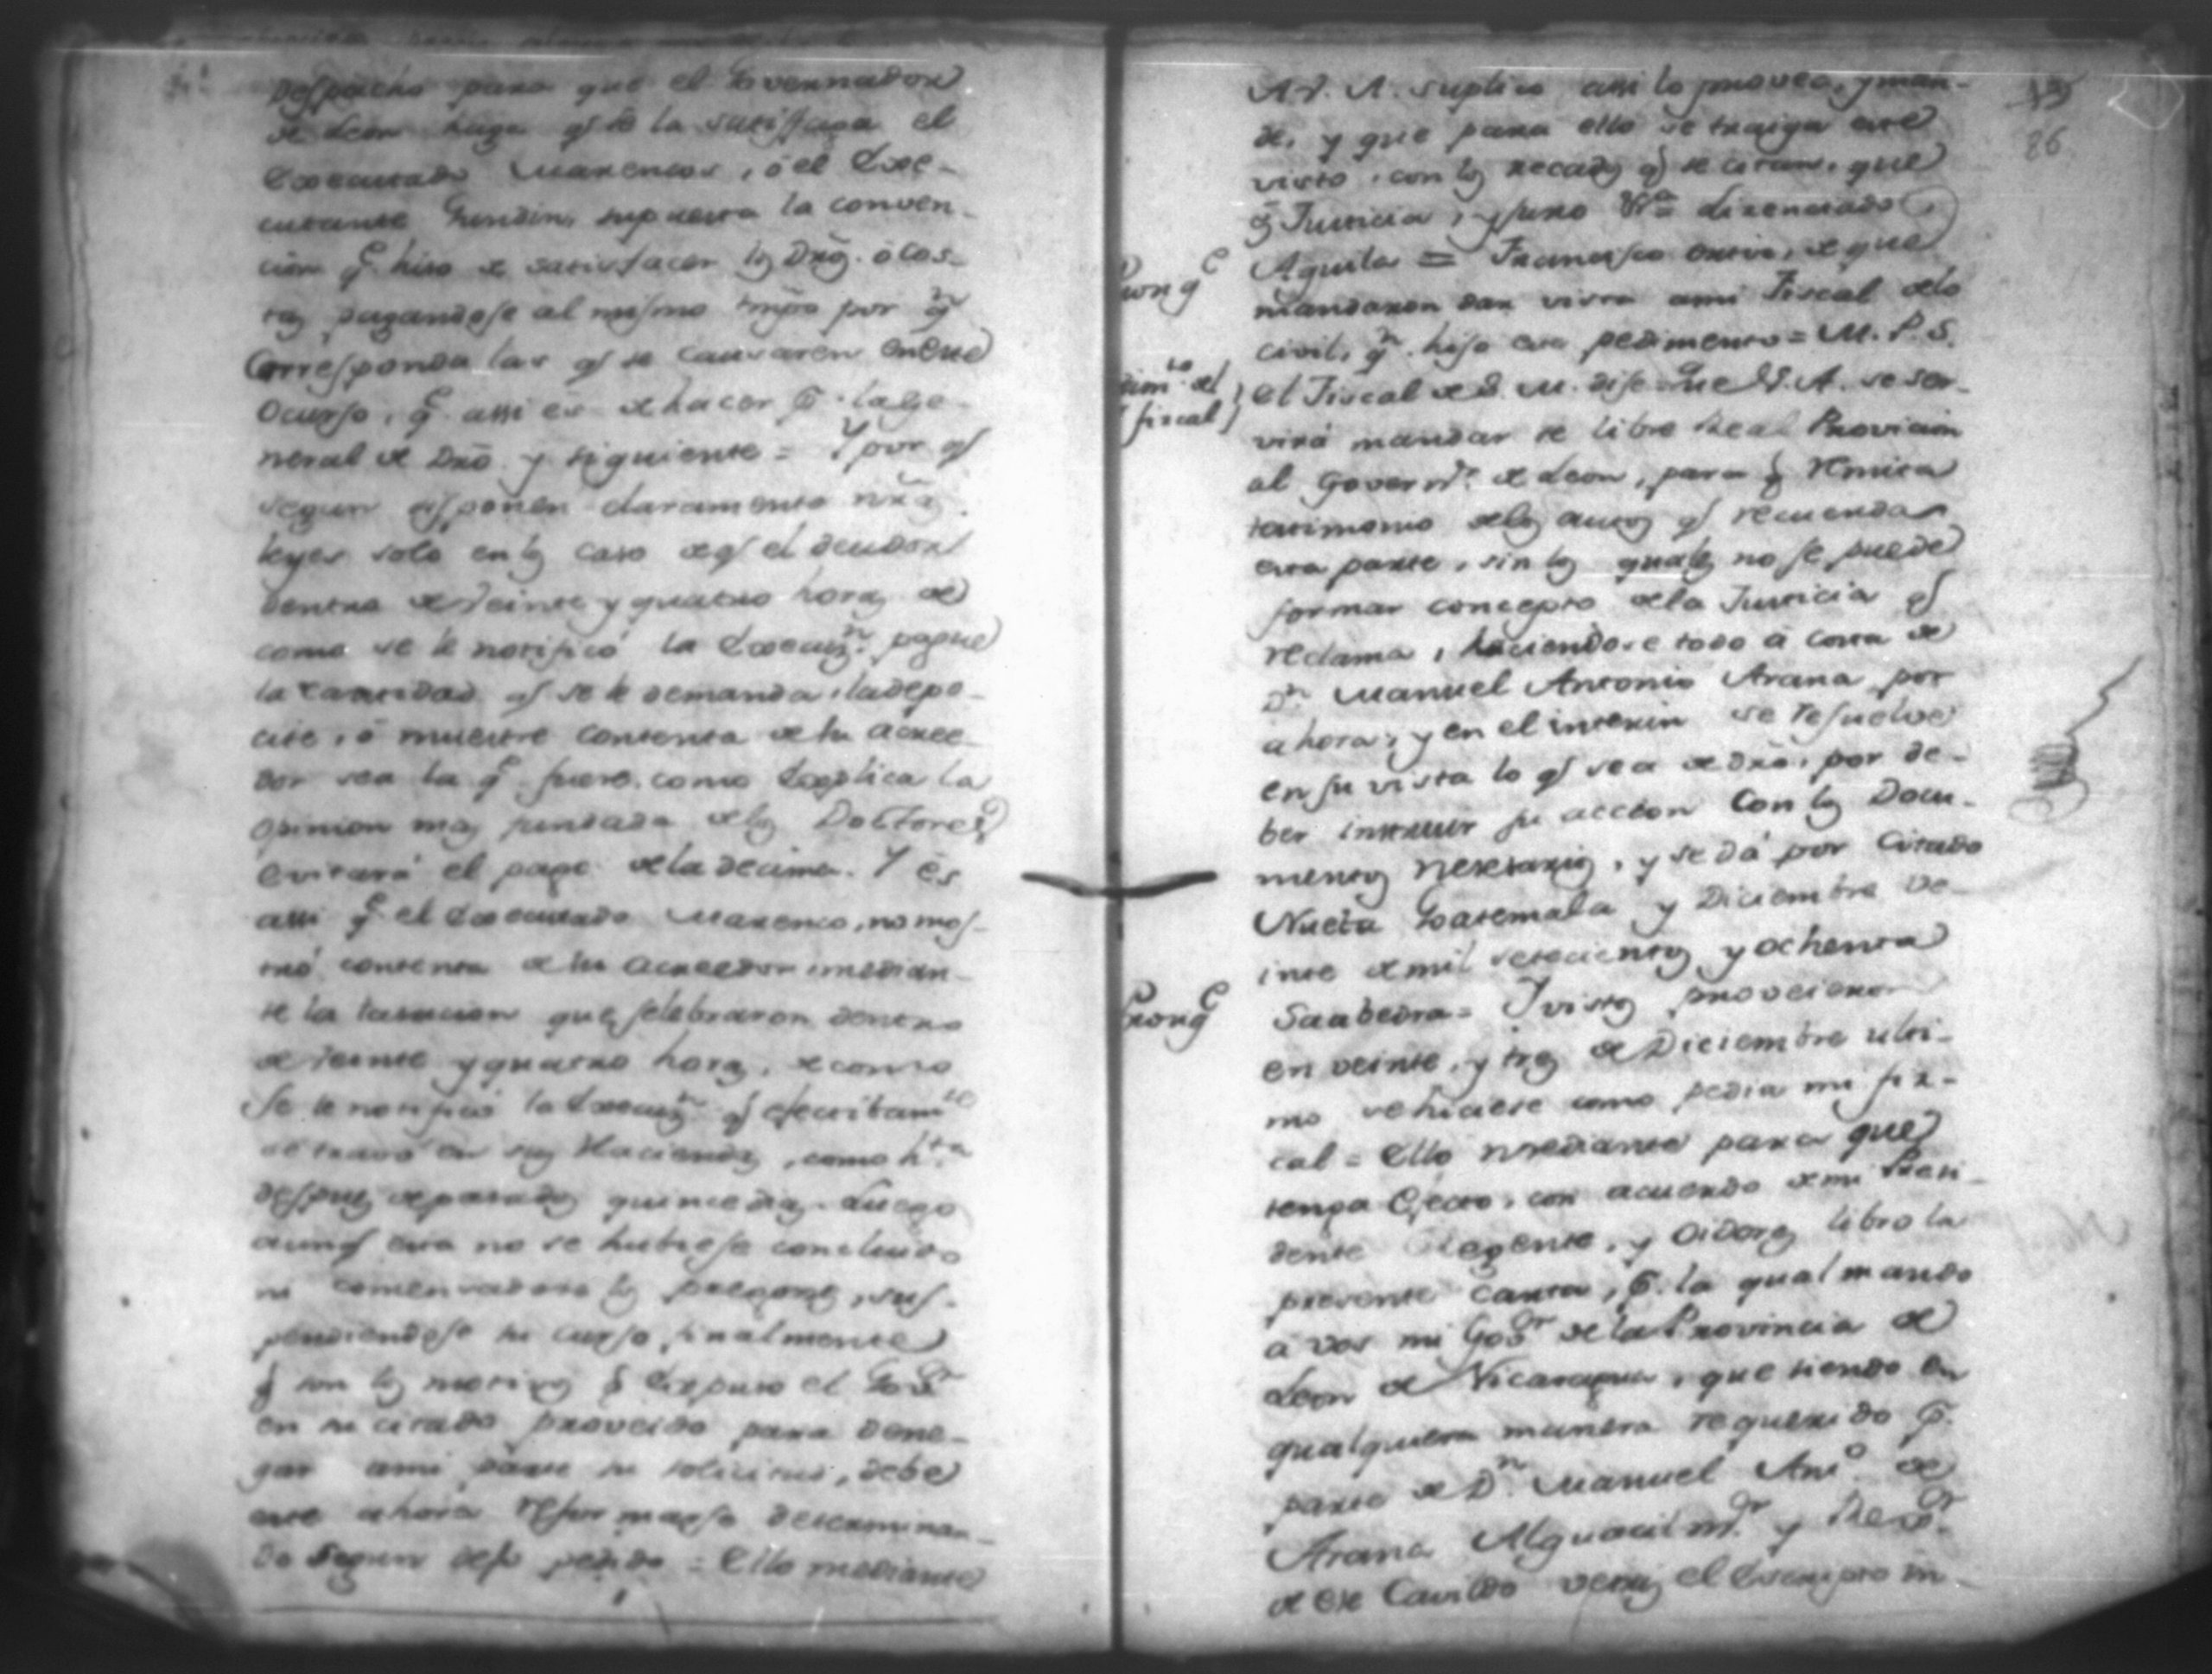 Despacho para que el Governador
de Leon haga q̃ se la satisfaga el
Executado Marencos, ó el Exe-
cutante, supuesta la conven-
cion q̃e hiso de satisfacer los Dr̃os. ó cos-
tas pagandose al mismo tmpo por qn
Corresponda las q̃ se causaren en este
Ocurso, q̃e assi es de hacer p. la ge-
neral de Dr̃o y siguiente = Y por q̃
segun disponen claramente nr̃as
leyes solo en los caso de q̃ el deudor
dentro de veinte y quatro horas de
como se le notificó la Execuzn. pague
la cantidad q̃ se le demanda, la depo-
cite, ó muestre contenta de su acree-
dor sea la q̃e fuere, como Explica la
Opinion mas fundada de los Doctores
evitará el pago de la decima. Y es
assi q̃e el Executado Marenco, no mos-
tró contenta de su acreedor median-
te la que selebraron dentro
de veinte y quatro horas, de como
Se le notificó la Execuzn q̃ efectibamte
se travó en sus Haciendas, como hta
despues de pasados quince dias. Luego
aunq̃ esta no se hubiese concluido
ni comensadose los pregones, sus-
pendiendose su curso, finalmente
q̃ son los motivos q̃ Expuso el Govr
en su citado proveido para dene-
gar a mi parte su solicitud, debe
este ahora reformarse determinan-
do segun dejo pedido = Ello mediante
13
86
A V. A. suplico assi lo provea, y man-
de, y que para ello se traiga este
visto, con los recados q̃ se citan, que
es Justicia, y juro Va = Lizenciado
Aguila = Francisco, de que
Prong e
mandaron dar vista a mi Fiscal de lo
civil, qn. hiso este pedimento = M. P. S.
dimto. del
fiscal
el Fiscal de S. M. dise: Que V. A. se ser-
virá mandar se libre Real Provicion
al Governr. de Leon, para q̃ remita
testimonio de los autos q̃ recuerda
esta parte, sin los quales no se puede
formar concepto de la Justicia q̃
reclama, haciendose todo á costa de
Dn. Manuel Antonio Arana por
ahora, y en el interin se resuelve
en su vista lo q̃ sea de Dr̃o. por de-
ber instruir su accion Con los Docu-
mentos nesesarios, y se dá por Citado
Nueba Goatemala y Diciembre ve-
inte de mil setecientos y ochenta
Saabedra = I vistos proveieron
Prong e
en veinte, y tres de Diciembre ulti-
mo se hiciese como pedia mi fis-
cal = Ello mediante para que
tenga Efecto, con acuerdo de mi Presi-
dente Regente, y Oidores libro la
presente Carta, p. la qual mando
á vos mi Govr de la Provincia de
Leon de Nicaragua, que siendo en
qualquiera manera requerido p.
parte de Dn. Manuel Anto. de
Arana Alguacil mr. y Rexor.
de ese Cavildo veais el Escripto in-